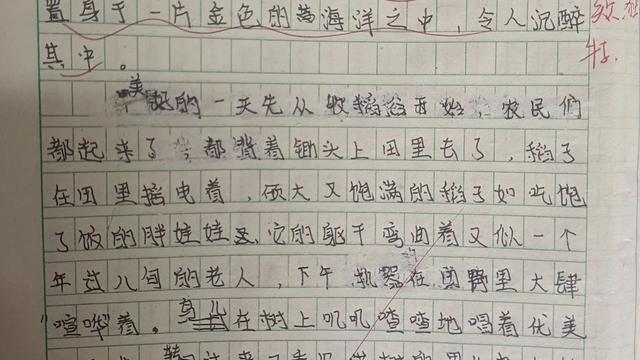 置身于一片金色的黄海洋之中，令人沉醉
其中。
美的一天先从收稻谷开始，农民们
都起来了，都背着锄头上田里去了，稻子
在田里摇电着，硕大又饱满的稻子如吃饱
了饭的胖娃娃，它的躯干弯曲着又似一个
年过八旬的老人，下午机器在田野里大肆
"喧哗"着。鸟儿在树上叽叽喳喳地唱着优美